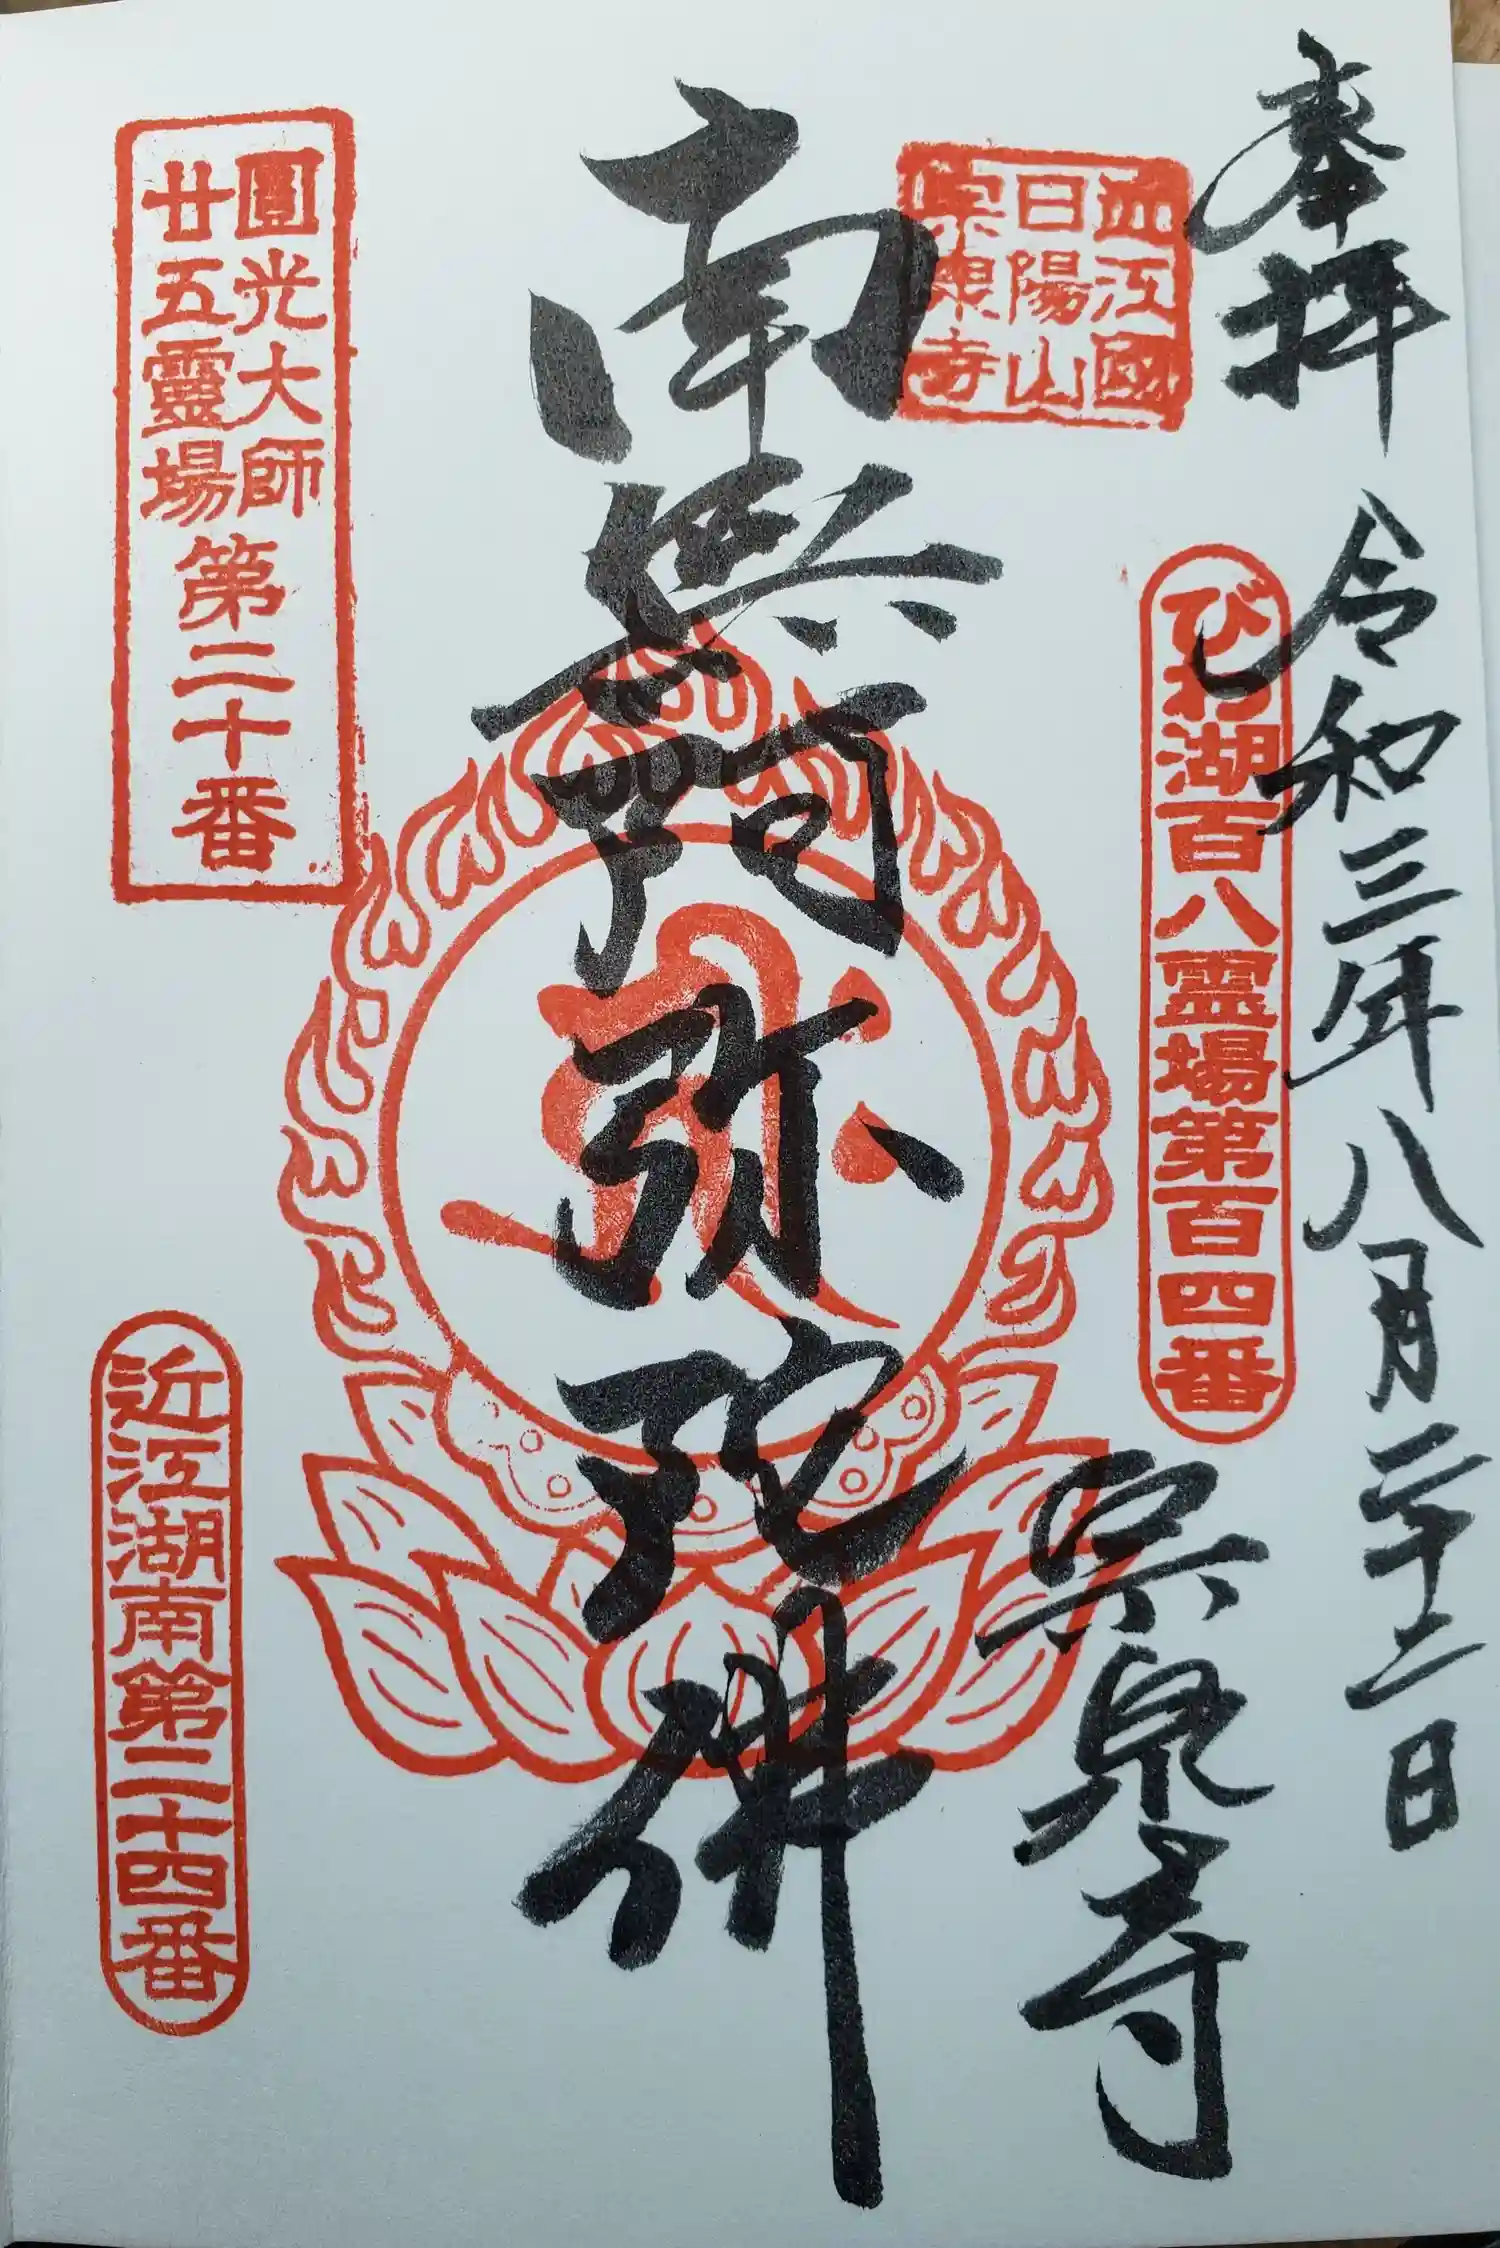 奉拝
令和三年八月二十二日
びわ湖百八霊場第百四番
近江國
日陽山
宗泉寺
宗泉寺
南無阿弥陀佛
圓光大師
廿五靈場
第二十番
近江湖南第二十四番